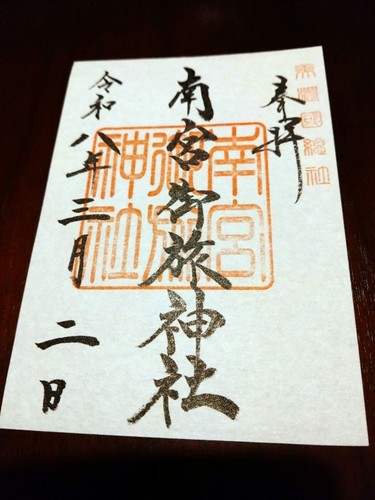 美濃國総社
奉拝
南宮御旅神社
南宮
御旅
神社
令和八年三月二日